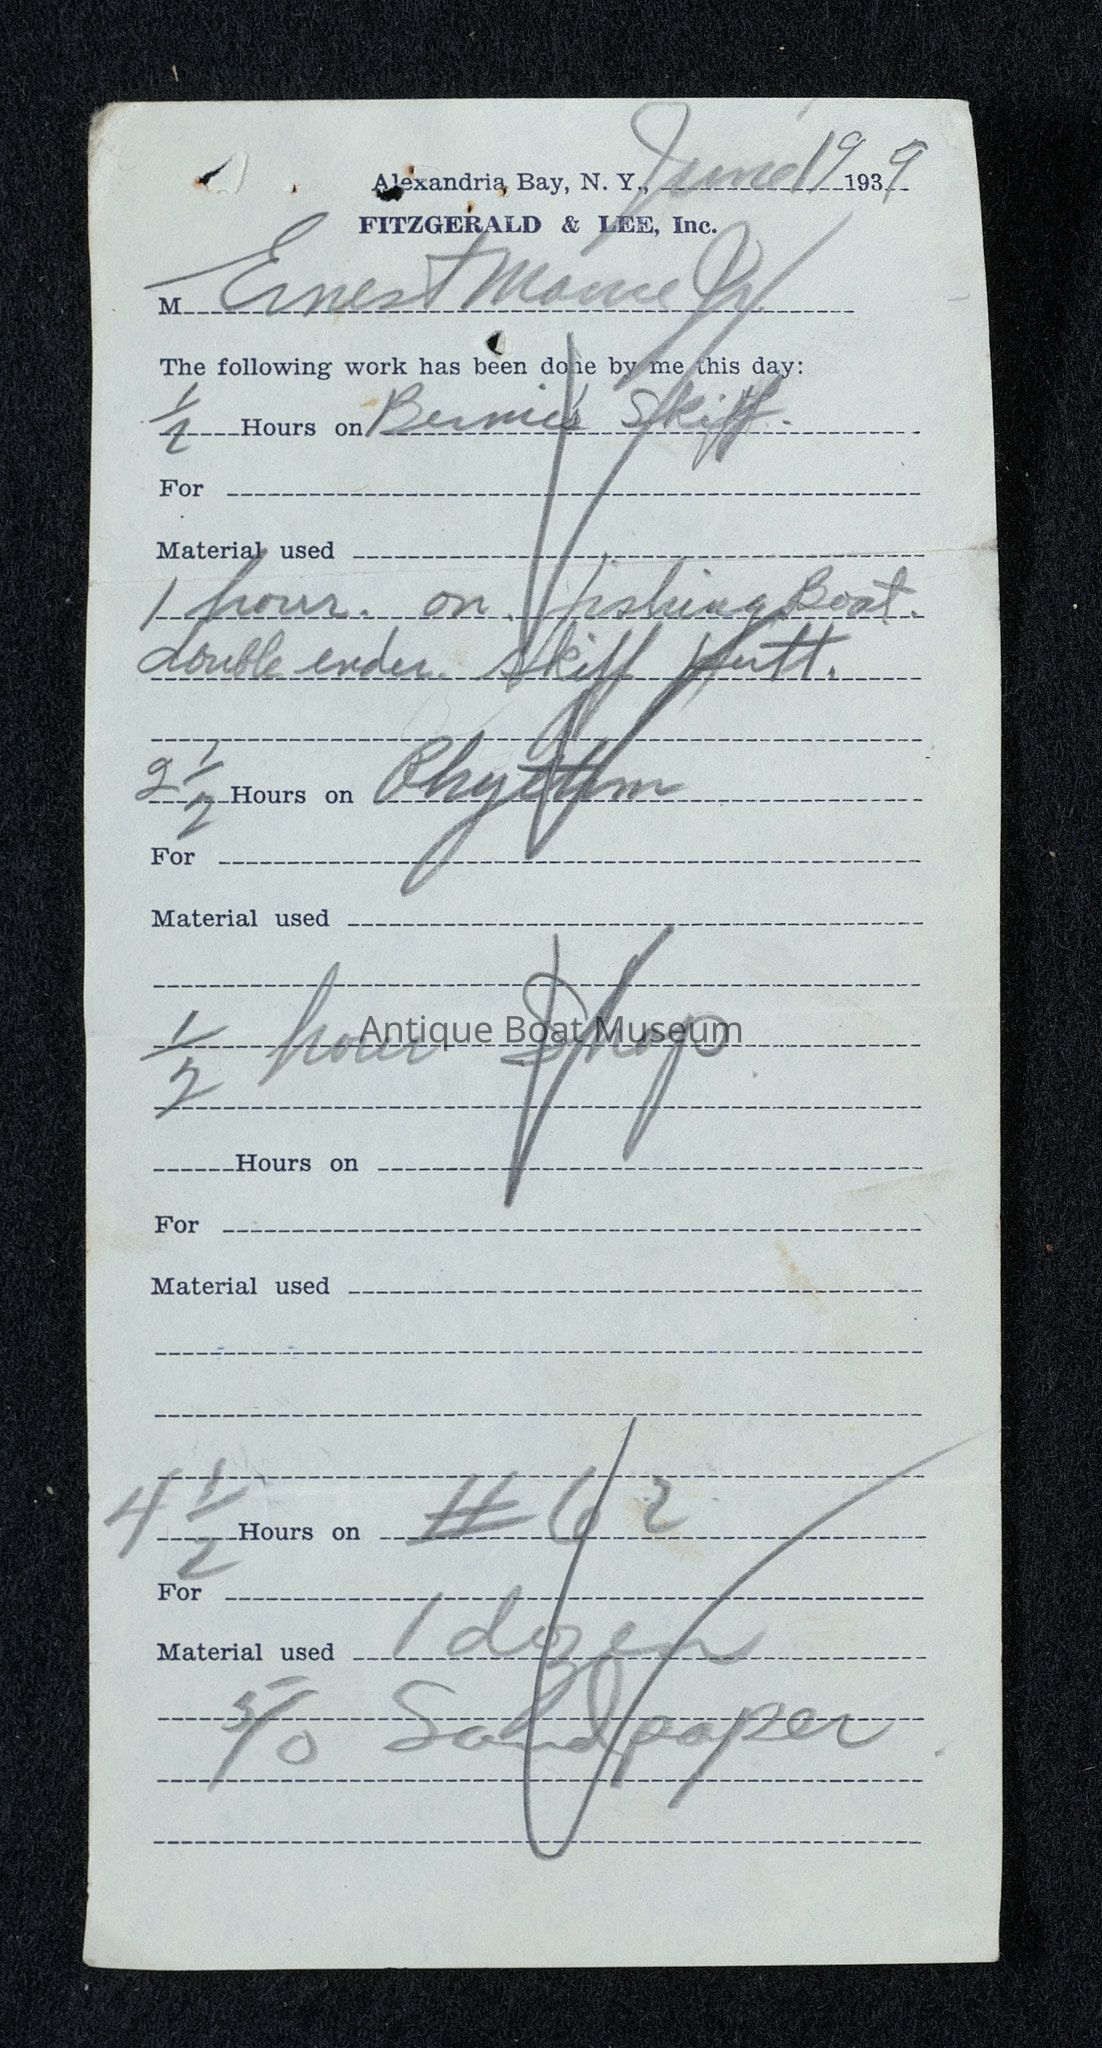 Alexandria Bay, N. Y., June 19 1939
FITZGERALD & LEE, Inc.
M Ernest Mance Jr.
The following work has been done by me this day:
1/2 Hours on Bernie's Skiff.
For
Material used
1 hour. on. fishing Boat.
double ender. skiff putt.
2 1/2 Hours on Rhythm
For
Material used
1/2 hour Shop
Antique Boat Museum
Hours on
For
Material used
4 1/2 Hours on # 62
For
Material used 1 dozen
5/0 Sandpaper